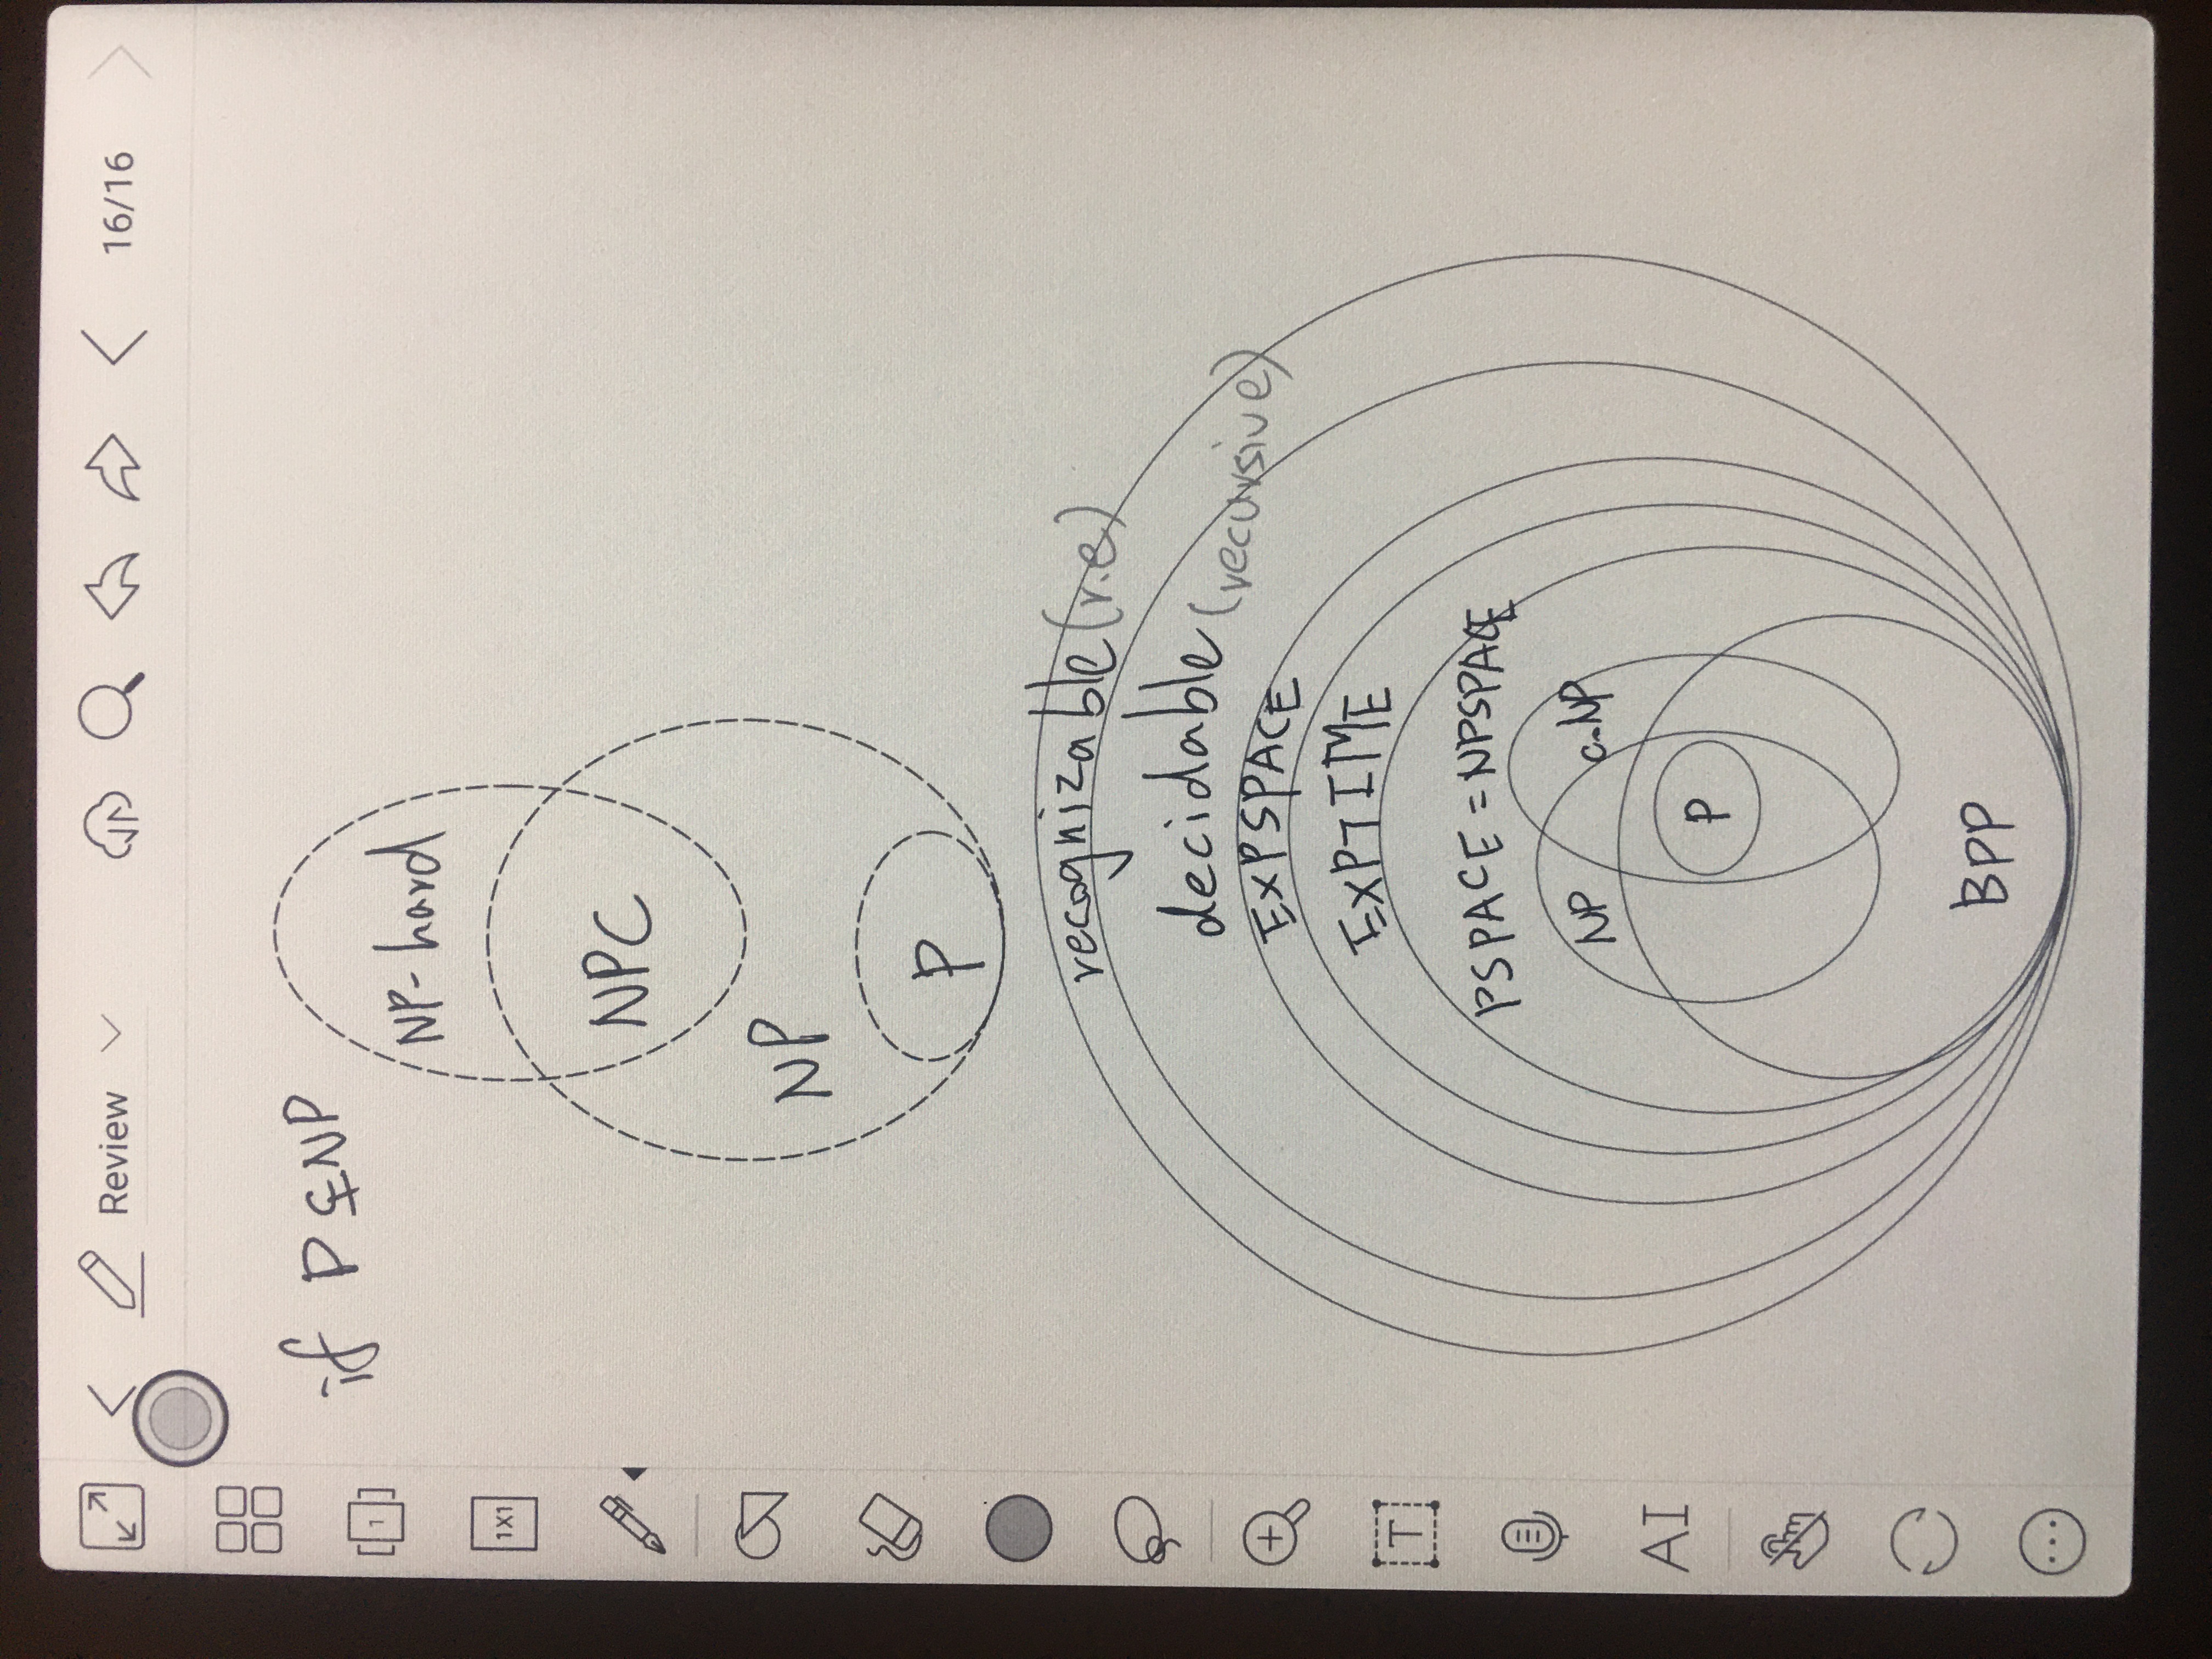 Review
16/16
1
1X1
T
AI
if P ⊊ NP
NP-hard
NPC
NP
P
recognizable (r.e)
decidable (recursive)
EXPSPACE
EXPTIME
PSPACE = NPSPACE
NP
co-NP
P
BPP